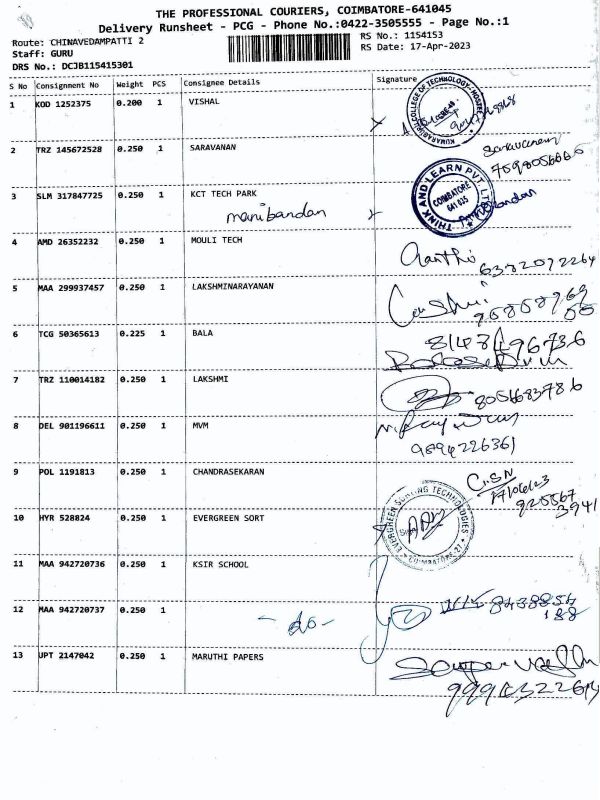 THE PROFESSIONAL COURIERS, COIMBATORE-641045
Delivery Runsheet - PCG - Phone No.:0422-3505555 - Page No.:1
Route: CHINAVEDAMPATTI 2
Staff: GURU
DRS No.: DCJB115415301
RS No.: 1154153
RS Date: 17-Apr-2023
S No Consignment No Weight PCS Consignee Details Signature
1 KOD 1252375 0.200 1 VISHAL
2 TRZ 145672528 0.250 1 SARAVANAN
Saravanan
3 SLM 317847725 0.250 1 KCT TECH PARK
manibandan
THINK AND LEARN PVT. LTD
COIMBATORE
641 035
4 AMD 26352232 0.250 1 MOULI TECH
6382072264
5 MAA 299937457 0.250 1 LAKSHMINARAYANAN
6 TCG 50365613 0.225 1 BALA
7 TRZ 110014182 0.250 1 LAKSHMI
8056683786
8 DEL 901196611 0.250 1 MVM
9894226361
9 POL 1191813 0.250 1 CHANDRASEKARAN
C.S.N
925567
3941
10 HYR 528824 0.250 1 EVERGREEN SORT
EVERGREEN SORTING TECHNOLOGIES
11 MAA 942720736 0.250 1 KSIR SCHOOL
12 MAA 942720737 0.250 1
- do -
188
13 UPT 2147042 0.250 1 MARUTHI PAPERS